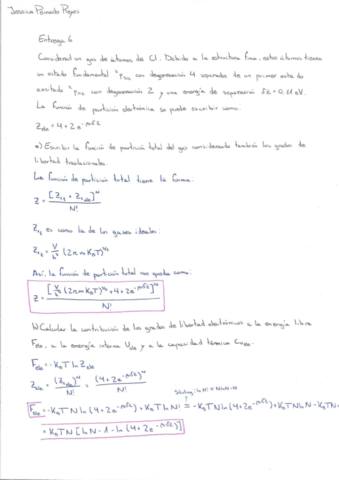 Jessica Poinardo Reyes
Entrega 6
Considerad un gas de átomos de Cl. Debido a la estructura fina, estos átomos tienen
un estado fundamental ²P3/2 con degeneración 4 separados de un primer estado
excitado ²P1/2 con degeneración 2 y una energía de separación δε = 0,11 eV.
La función de partición electrónica se puede escribir como:
Z₁ele = 4 + 2e^(-βδε)
a) Escribir la función de partición total del gas considerando también los grados de
libertad traslacionales.
La función de partición total tiene la forma:
Z = [Z₁t + Z₁ele]^N / N!
Z₁t es como la de los gases ideales:
Z₁t = V/h³ (2πmKBT)^3/2
Así, la función de partición total nos queda como:
Z = [V/h³ (2πmKBT)^3/2 + 4 + 2e^(-βδε)]^N / N!
b) Calcular la contribución de los grados de libertad electrónicos a la energía libre
Fele, a la energía interna Uele y a la capacidad térmica Cele.
Fele = -KBT ln Zele
Zele = (Z₁ele)^N / N! = (4 + 2e^(-βδε))^N / N!
Stirling: ln N! ≈ N ln N - N
Fele = -KBTN ln(4 + 2e^(-βδε)) + KBT ln N! = -KBTN ln(4 + 2e^(-βδε)) + KBTN ln N - KBTN =
= KBTN [ln N - 1 - ln(4 + 2e^(-βδε))]